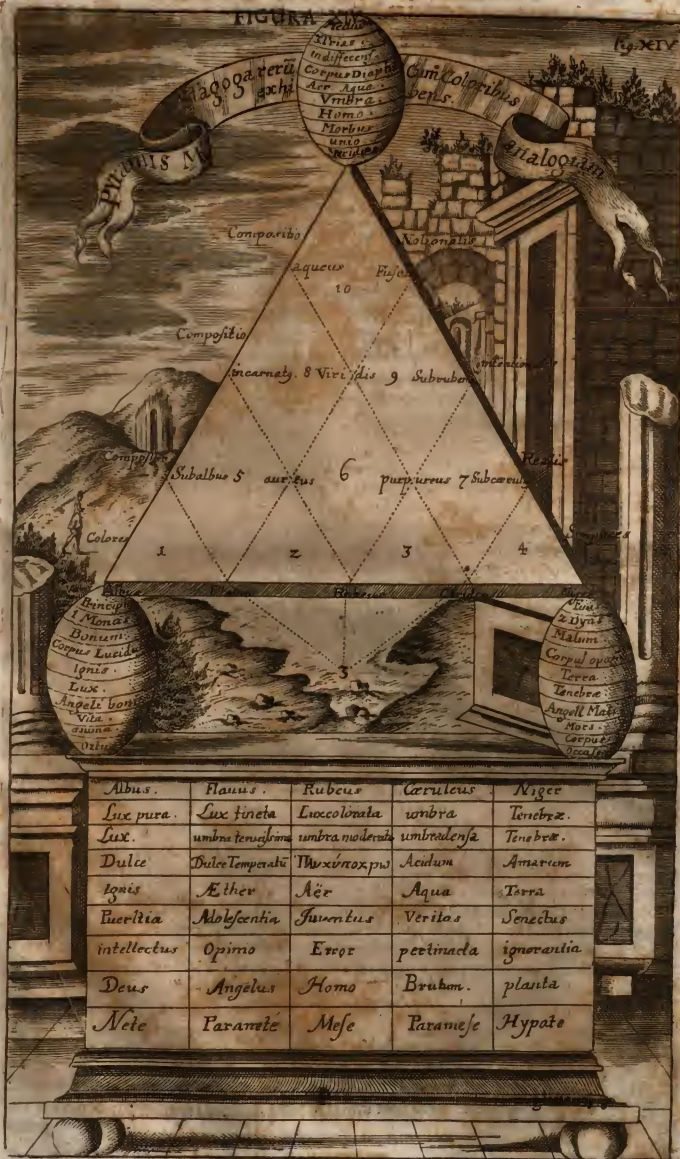 FIGURA XIV
fig. XIV
Pyramis
agoga rerū
exhi
Cum Coloribus
bens.
analogium
indifferens
Corpus Diaph
Aer Aqua
Vmbra
Homo
Morbus
unio
Compositio
Notionalis
aqueus
10
Compositio
incarnatꝰ. 8 Viridis 9 Subrubens
Composit
Realis
Subalbus 5 aureus 6 purpureus 7 Subcærul
Colores
1 2 3 4
Albus
Rubeus
Principi
1 Monas
Bonum
Corpus Lucidu
Ignis
Lux.
Angeli boni
Vita.
anima
Ortus
3
2 Dyas
Malum
Corpus opac
Terra
Tenebræ
Angeli Mali
Mors.
Corpus
Occasus
Albus. Flauus. Rubeus Cæruleus Niger
Lux pura. Lux tincta Lux colorata umbra Tenebræ.
Lux. umbra tenuissima umbra moderata umbra densa Tenebræ.
Dulce Dulce Temperatū Acidum Amarum
Ignis Æther Aër Aqua Terra
Pueritia Adolescentia Iuuentus Veritas Senectus
intellectus Opimo Error pertinacia ignorantia
Deus Angelus Homo Brutum. planta
Nete Paranete Mese Paramese Hypate